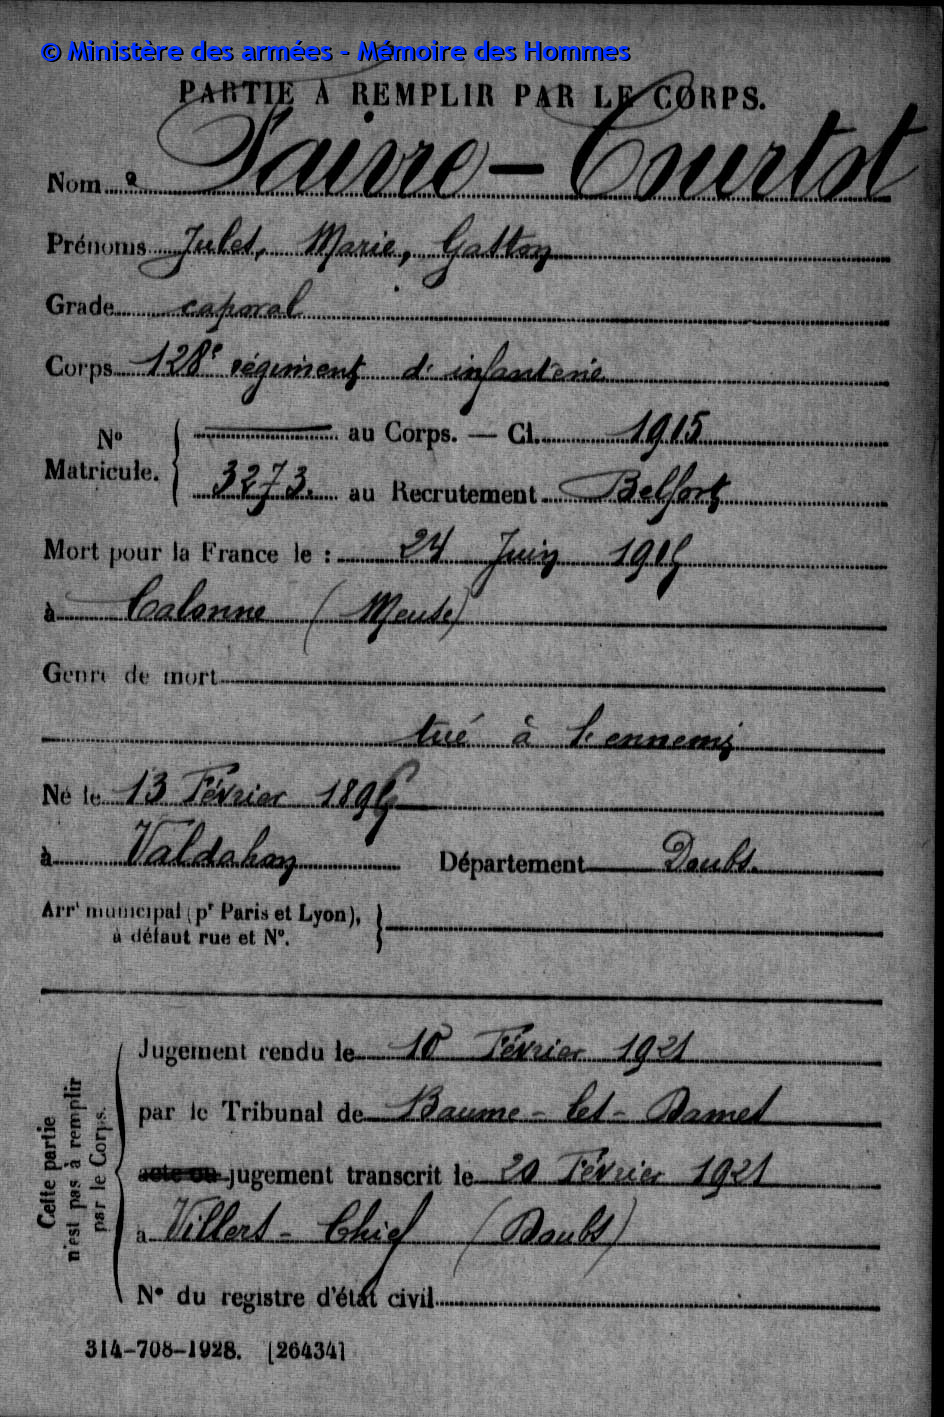 © Ministère des armées - Mémoire des Hommes
PARTIE À REMPLIR PAR LE CORPS.
Nom Faivre - Courtot
Prénoms Jules, Marie, Gaston
Grade caporal
Corps 128e régiment d'infanterie
No Matricule. { au Corps. — Cl. 1915
3273. au Recrutement Belfort
Mort pour la France le : 24 Juin 1915
à Calonne (Meuse)
Genre de mort
tué à l'ennemi
Né le 13 Février 1895
à Valdahon Département Doubs.
Arrt municipal (pr Paris et Lyon), }
à défaut rue et No.
Cette partie n'est pas à remplir par le Corps.
Jugement rendu le 10 Février 1921
par le Tribunal de Baume-les-Dames
acte ou jugement transcrit le 20 Février 1921
à Villers-Chief (Doubs)
No du registre d'état civil
314-708-1928. [26434]